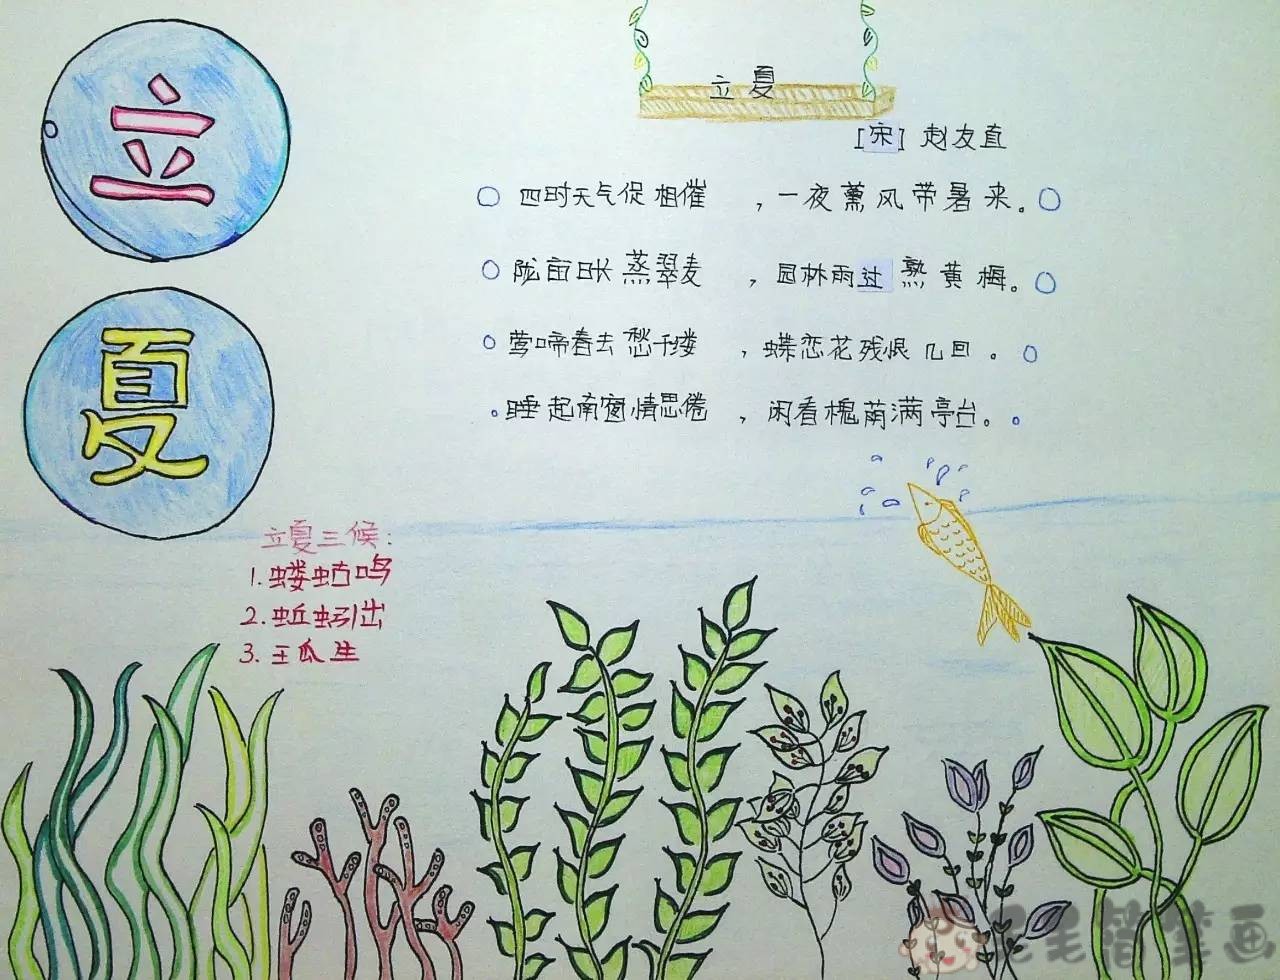 立
夏
立夏
[宋] 赵友直
四时天气促相催，一夜薰风带暑来。
陇亩日长蒸翠麦，园林雨过熟黄梅。
莺啼春去愁千缕，蝶恋花残恨几回。
睡起南窗情思倦，闲看槐荫满亭台。
立夏三候：
1.蝼蛄鸣
2.蚯蚓引出
3.王瓜生